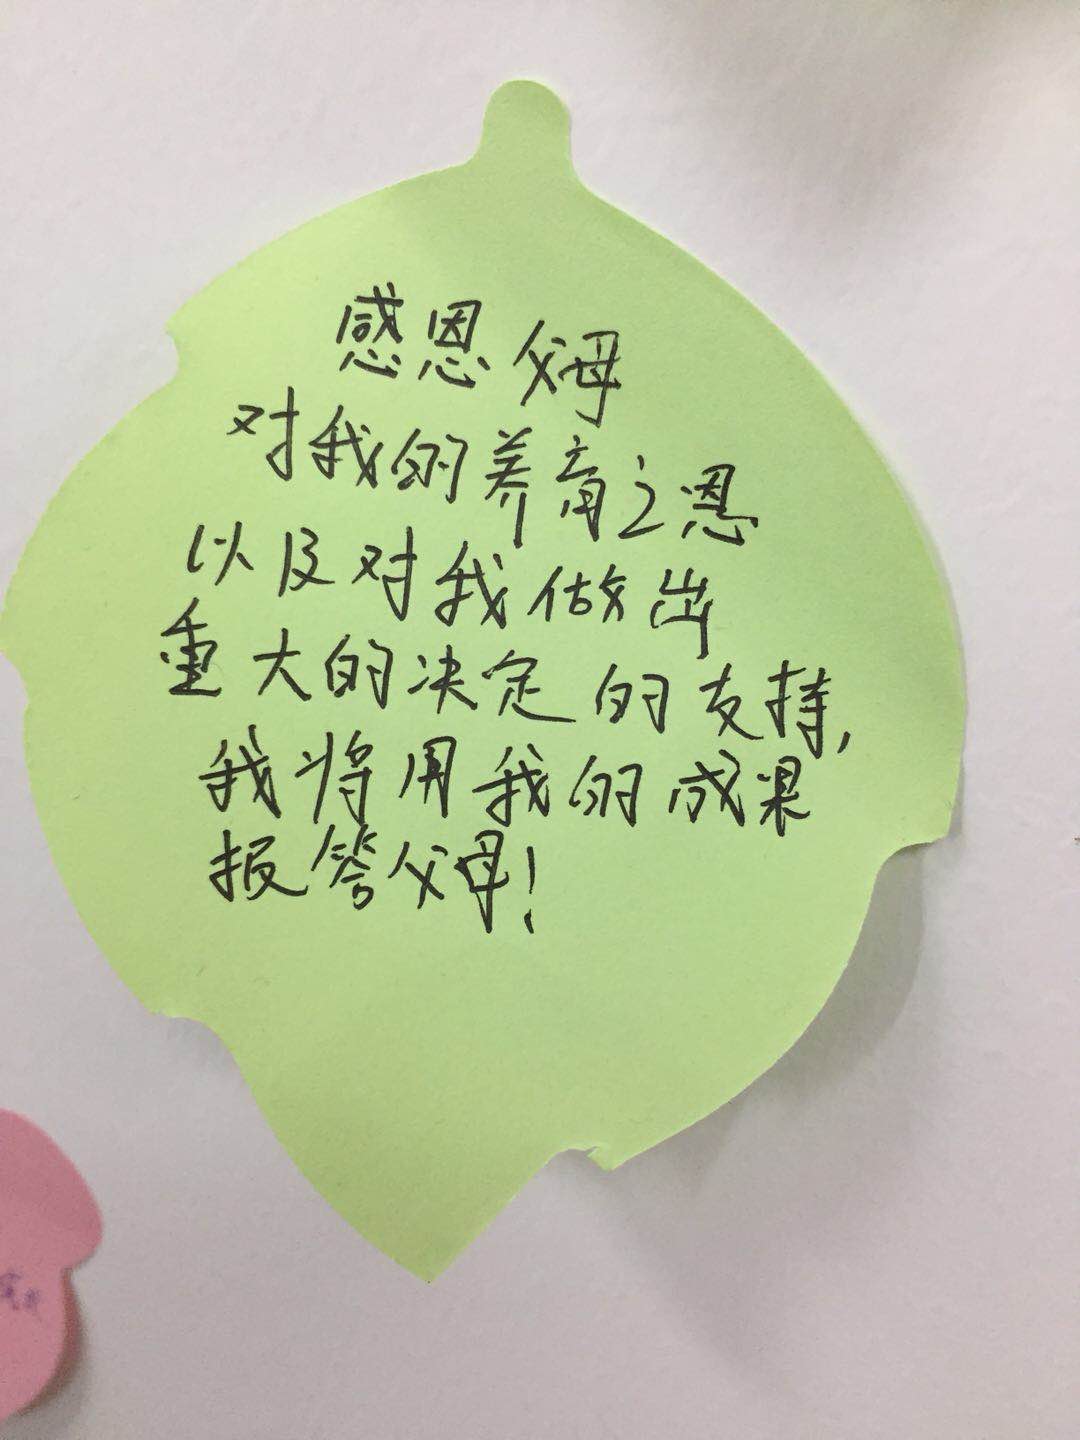 感恩父母
对我的养育之恩
以及对我做出
重大的决定的支持,
我将用我的成果
报答父母!